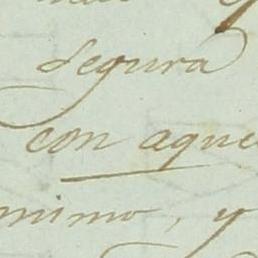 segura
con aque
nimo, y